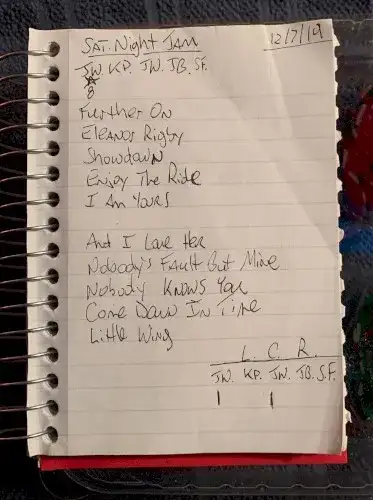 SAT. Night JAM 12/7/19
JW. KP. JW. JB. SF.
8
Further On
Eleanor Rigby
Showdown
Enjoy The Ride
I Am Yours
And I Love Her
Nobody's Fault But Mine
Nobody Knows You
Come Down In Time
Little Wing
L. C. R.
JW. KP. JW. JB. S.F.
| |